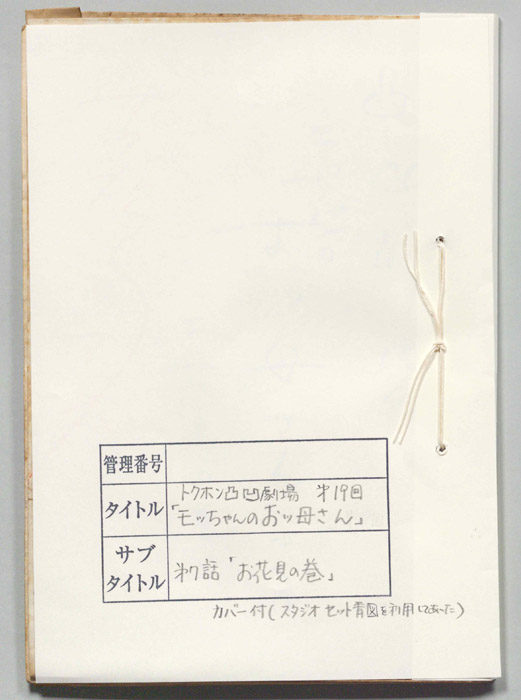 管理番号
タイトル
トクホン凸凹劇場 第19回
「モッちゃんのおッ母さん」
サブ
タイトル
第7話「お花見の巻」
カバー付(スタジオセット青図を利用してあった)